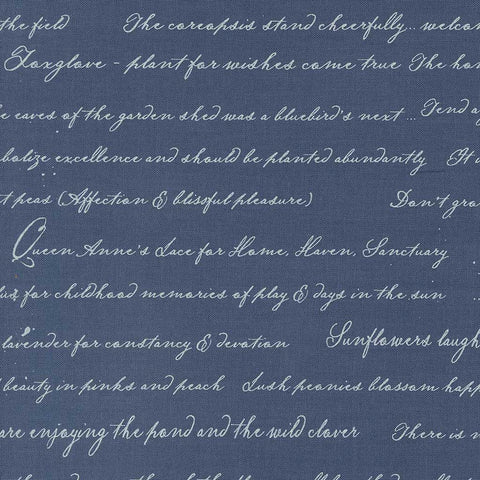 the field The coreopsis stand cheerfully... welcom
Foxglove - plant for wishes come true The hon
e eaves of the garden shed was a bluebird's nest ... Tend a
bolize excellence and should be planted abundantly It
t peas (Affection & blissful pleasure) Don't gro
Queen Anne's Lace for Home, Haven, Sanctuary
for childhood memories of play & days in the sun
lavender for constancy & devotion Sunflowers laugh
beauty in pinks and peach Lush peonies blossom happ
are enjoying the pond and the wild clover There is n